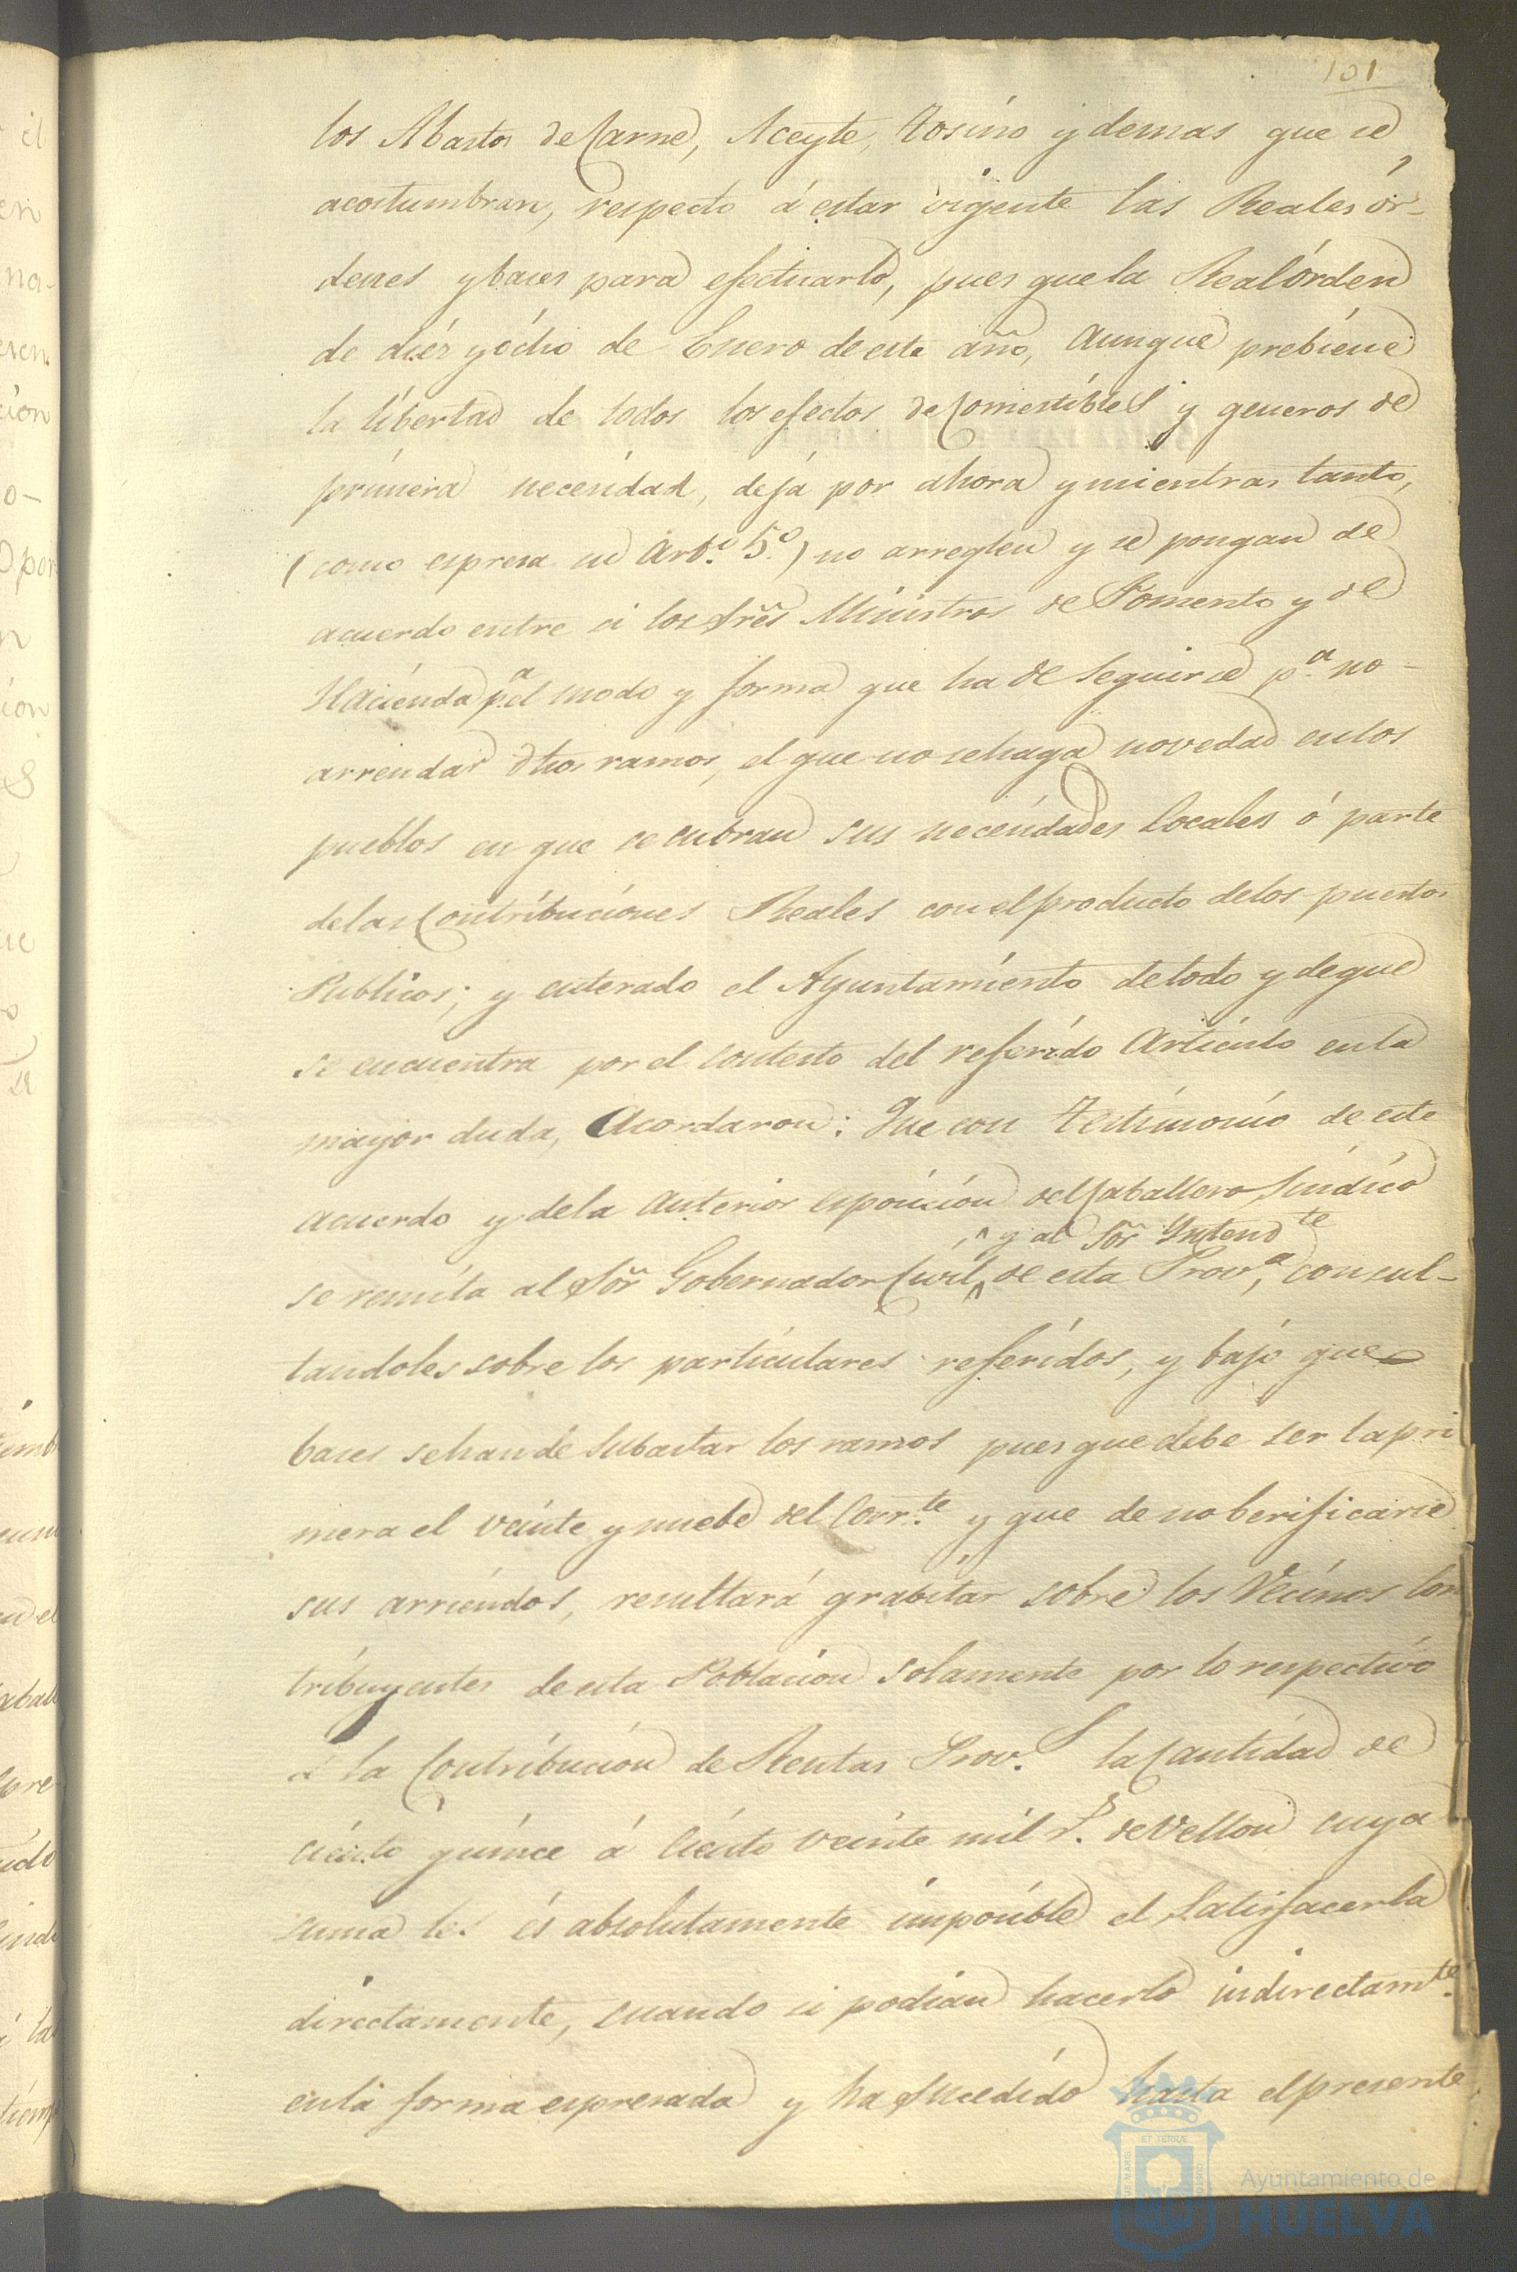 101
los Abastos de Carne, Aceyte, tosino y demas que se
acostumbran, respecto á estar vigente las Reales ór-
denes y bases para efectuarlo, pues que la Real órden
de diéz y ócho de Enero de este año, aunque prebiene
la libertad de todos los efectos de Comestibles y generos de
primera necesidad, deja por ahora y mientras tanto,
(como espresa su Art.º 5.º) no arreglen y se pongan de
acuerdo entre si los Sres Ministros de Fomento y de
Hacienda p.ª el modo y forma que ha de seguirse p.ª no-
arrendar dhos ramos, el que no se haga novedad en los
pueblos en que se cubran sus necesidades locales ó parte
de las Contribuciones Reales con el producto de los puestos
Publicos; y enterado el Ayuntamiento de todo y de que
se encuentra por el contesto del referido Articulo en la
mayor duda, Acordaron: Que con testimonio de este
acuerdo y de la anterior esposicion del Caballero Sindico
y al Sor Intend.te
se remita al Sor Gobernador Civil de esta Prov.ª, consul-
tandoles sobre los particulares referidos, y bajo que
bases se han de subastar los ramos pues que debe ser la pri
mera el veinte y nuebe del Corr.te y que de no berificarse
sus arriendos, resultará grabitar sobre los Vecinos con
tribuyentes de esta Poblacion solamente por lo respectivo
á la Contribucion de Rentas Prov.s la Cantidad de
ciento quince á ciento veinte mil r.s de Vellon cuya
suma les és absolutamente imposible el satisfacerla
directamente, cuando si podian hacerlo indirectam.te
en la forma espresada y ha sucedido hasta el presente
Ayuntamiento de
HUELVA